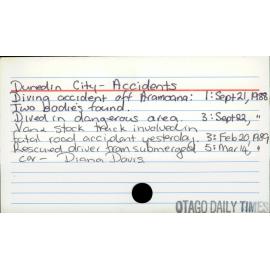 Dunedin City - Accidents
Diving accident off Aramoana: 1: Sept 21, 1988
Two bodies found.
Dived in dangerous area. 3: Sept 22, "
Vane stock truck involved in
fatal road accident yesterday. 3: Feb 20, 1989
Rescued driver from submerged 5: Mar 14, "
car - Diana Davis
OTAGO DAILY TIMES